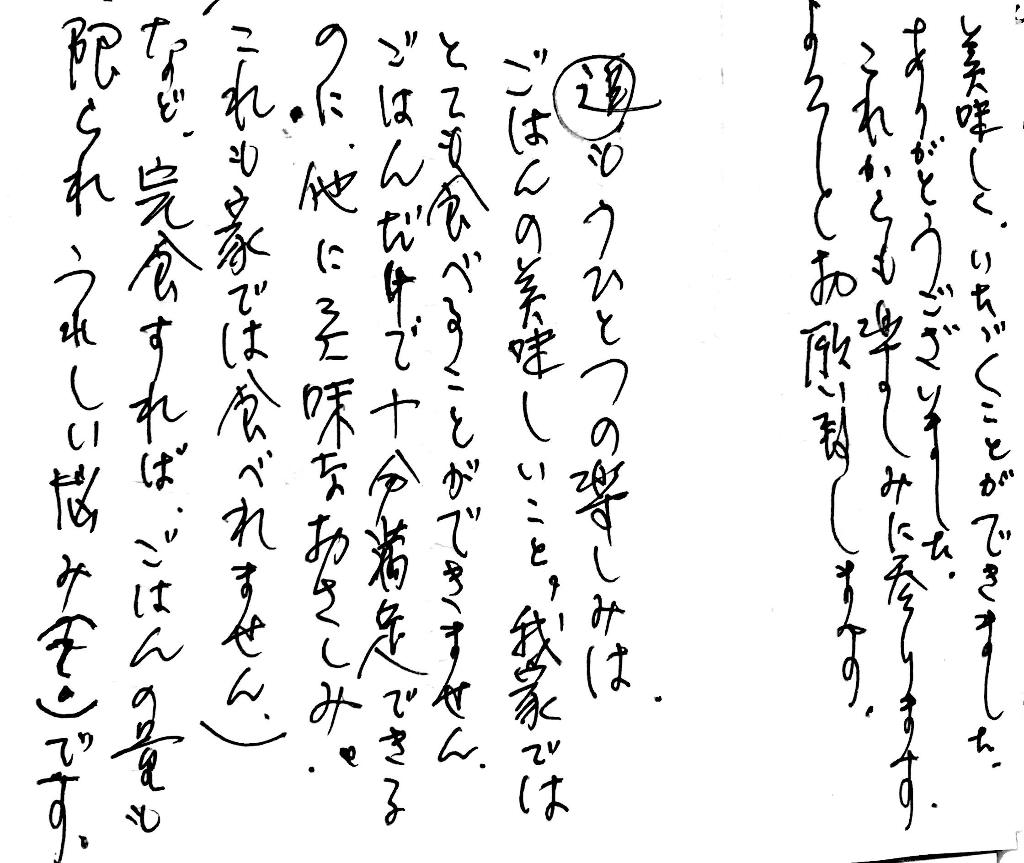 美味しく、いただくことができました。
ありがとうございました。
これからも楽しみに参ります。
よろしくお願い致します。
追 もうひとつの楽しみは、
ごはんの美味しいこと。我家では
とても食べることができません。
ごはんだけで十分満足できる
のに、他に美味なおさしみ。
これも家では食べれません。)
など、完食すれば、ごはんの量も
限られ うれしい悩み(笑)です。